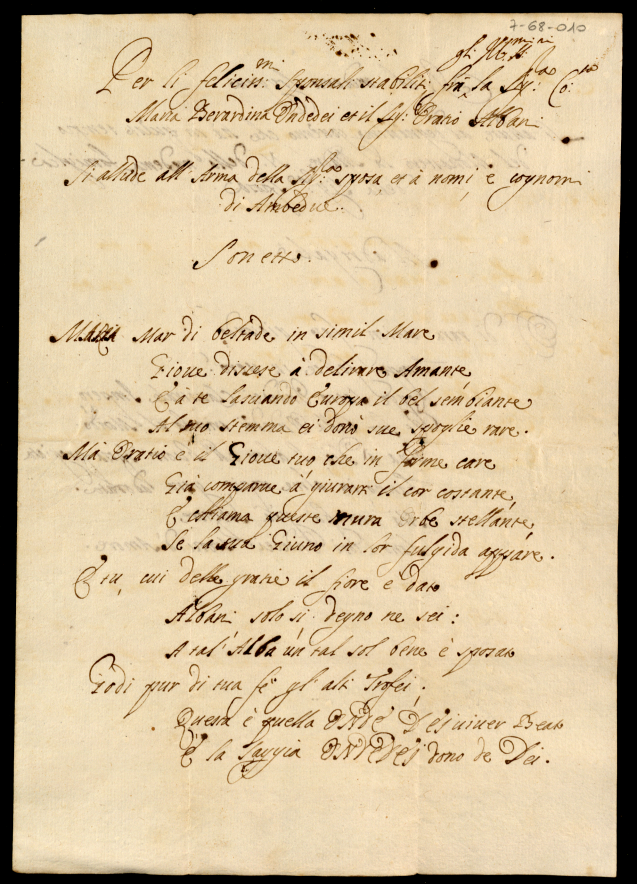 7-68-010
gl. Ill.mi
Per li felicis.mi sponsali stabiliti frà la Sig.ra Co.ssa
Maria Berardina Ondedei et il Sig.r Oratio Albani
Si allude all'Arma della Sig.ra sposa et à nomi, e cognomi
di Ambedue.
Sonetto.
MARIA Mar di beltade in simil Mare
Giove discese à delirare Amante
E à te lasciando Europa il bel sembiante
Al tuo stemma ei donò sue spoglie rare.
Mà Oratio è il Giove tuo che in forme care
Già comparve à giurarti il cor costante,
E chiama queste mura Orbe stellante
Se la sua Giuno in lor fulgida appare.
E tu, cui delle gratie il fiore è dato
Albani solo sì degno ne sei:
A tal' Alba un tal sol bene è sposato
Godi pur di tua fè gl'alti Trofei.
Questa è quella ONDE DEI viver Beato
E la saggia ONDEDEI dono de Dei.